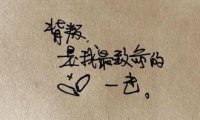 背叛，
是我最致命的
一击。